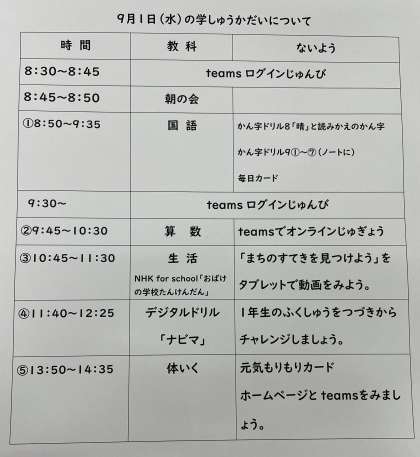 9月1日(水)の学しゅうかだいについて
時間 教科 ないよう
8:30～8:45 teams ログインじゅんび
8:45～8:50 朝の会
①8:50～9:35 国語 かん字ドリル8「晴」と読みかえのかん字
かん字ドリル9①～⑦(ノートに)
毎日カード
9:30～ teams ログインじゅんび
②9:45～10:30 算数 teamsでオンラインじゅぎょう
③10:45～11:30 生活 「まちのすてきを見つけよう」を
NHK for school「おばけ
の学校たんけんだん」 タブレットで動画をみよう。
④11:40～12:25 デジタルドリル 1年生のふくしゅうをつづきから
「ナビマ」 チャレンジしましょう。
⑤13:50～14:35 体いく 元気もりもりカード
ホームページと teamsをみまし
ょう。